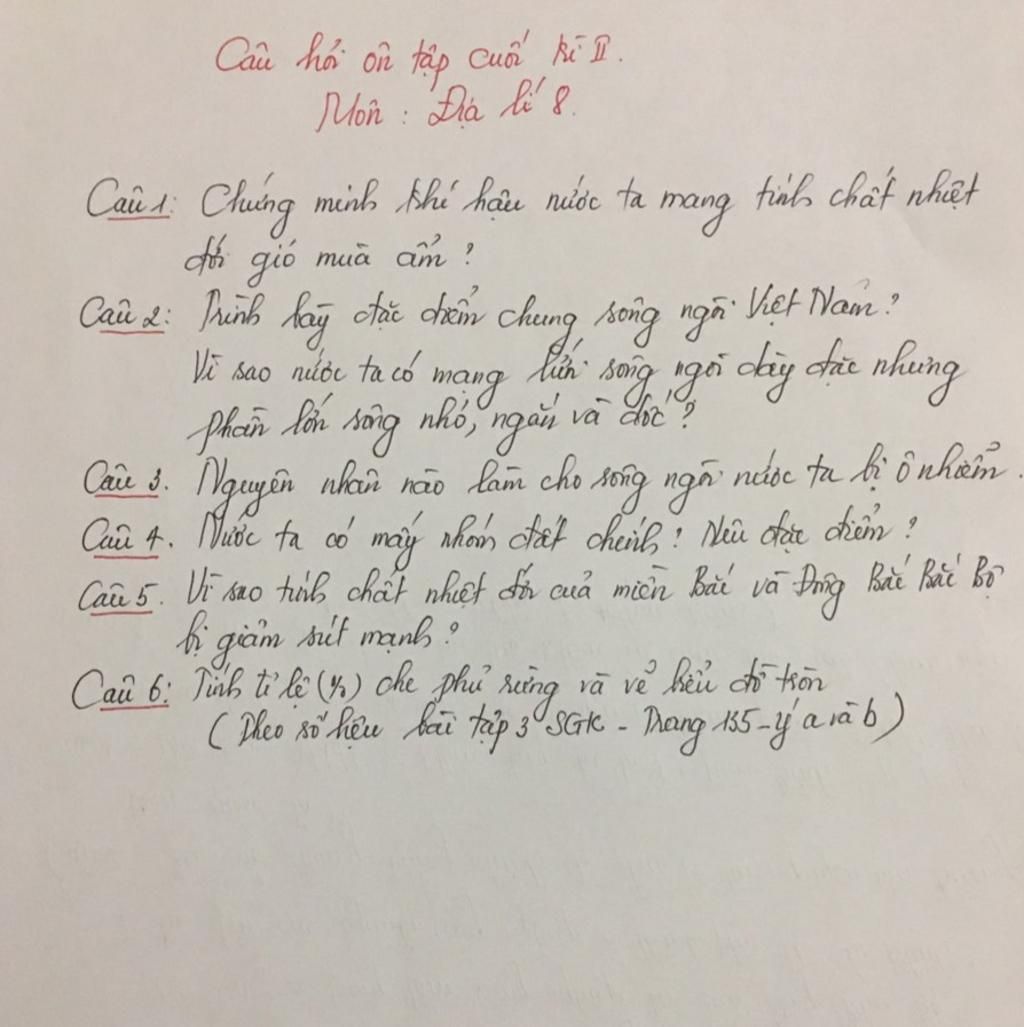 Câu hỏi ôn tập cuối kì II.
Môn : Địa lí 8.
Câu 1: Chứng minh khí hậu nước ta mang tính chất nhiệt
đới gió mùa ẩm ?
Câu 2: Trình bày đặc điểm chung sông ngòi Việt Nam ?
Vì sao nước ta có mạng lưới sông ngòi dày đặc nhưng
phần lớn sông nhỏ, ngắn và dốc ?
Câu 3. Nguyên nhân nào làm cho sông ngòi nước ta bị ô nhiễm.
Câu 4. Nước ta có mấy nhóm đất chính ? Nêu đặc điểm ?
Câu 5. Vì sao tính chất nhiệt đới của miền Bắc và Đông Bắc Bắc Bộ
bị giảm sút mạnh ?
Câu 6: Tính tỉ lệ (%) che phủ rừng và vẽ biểu đồ tròn
( Theo số liệu bài tập 3 SGK - Trang 135 - ý a và b )